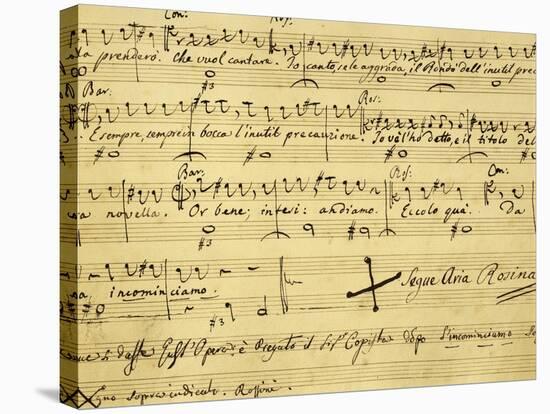 Con: Ros:
prenderò. che vuol cantare. Io canto, se le aggrada, il Rondò dell'inutil prec
Bar:
E sempre, sempre in bocca l'inutil precauzione. Ros: Io vel'ho detto, e il titolo del
Bar: Ros: Con:
va novella. Or bene; intesi: andiamo. Eccolo qua. Da
incominciamo. Segue Aria Rosina
si dasse Opera: è pregato il Sigr Copista dopo l'incominciamo
Segno sopra indicato. Rossini